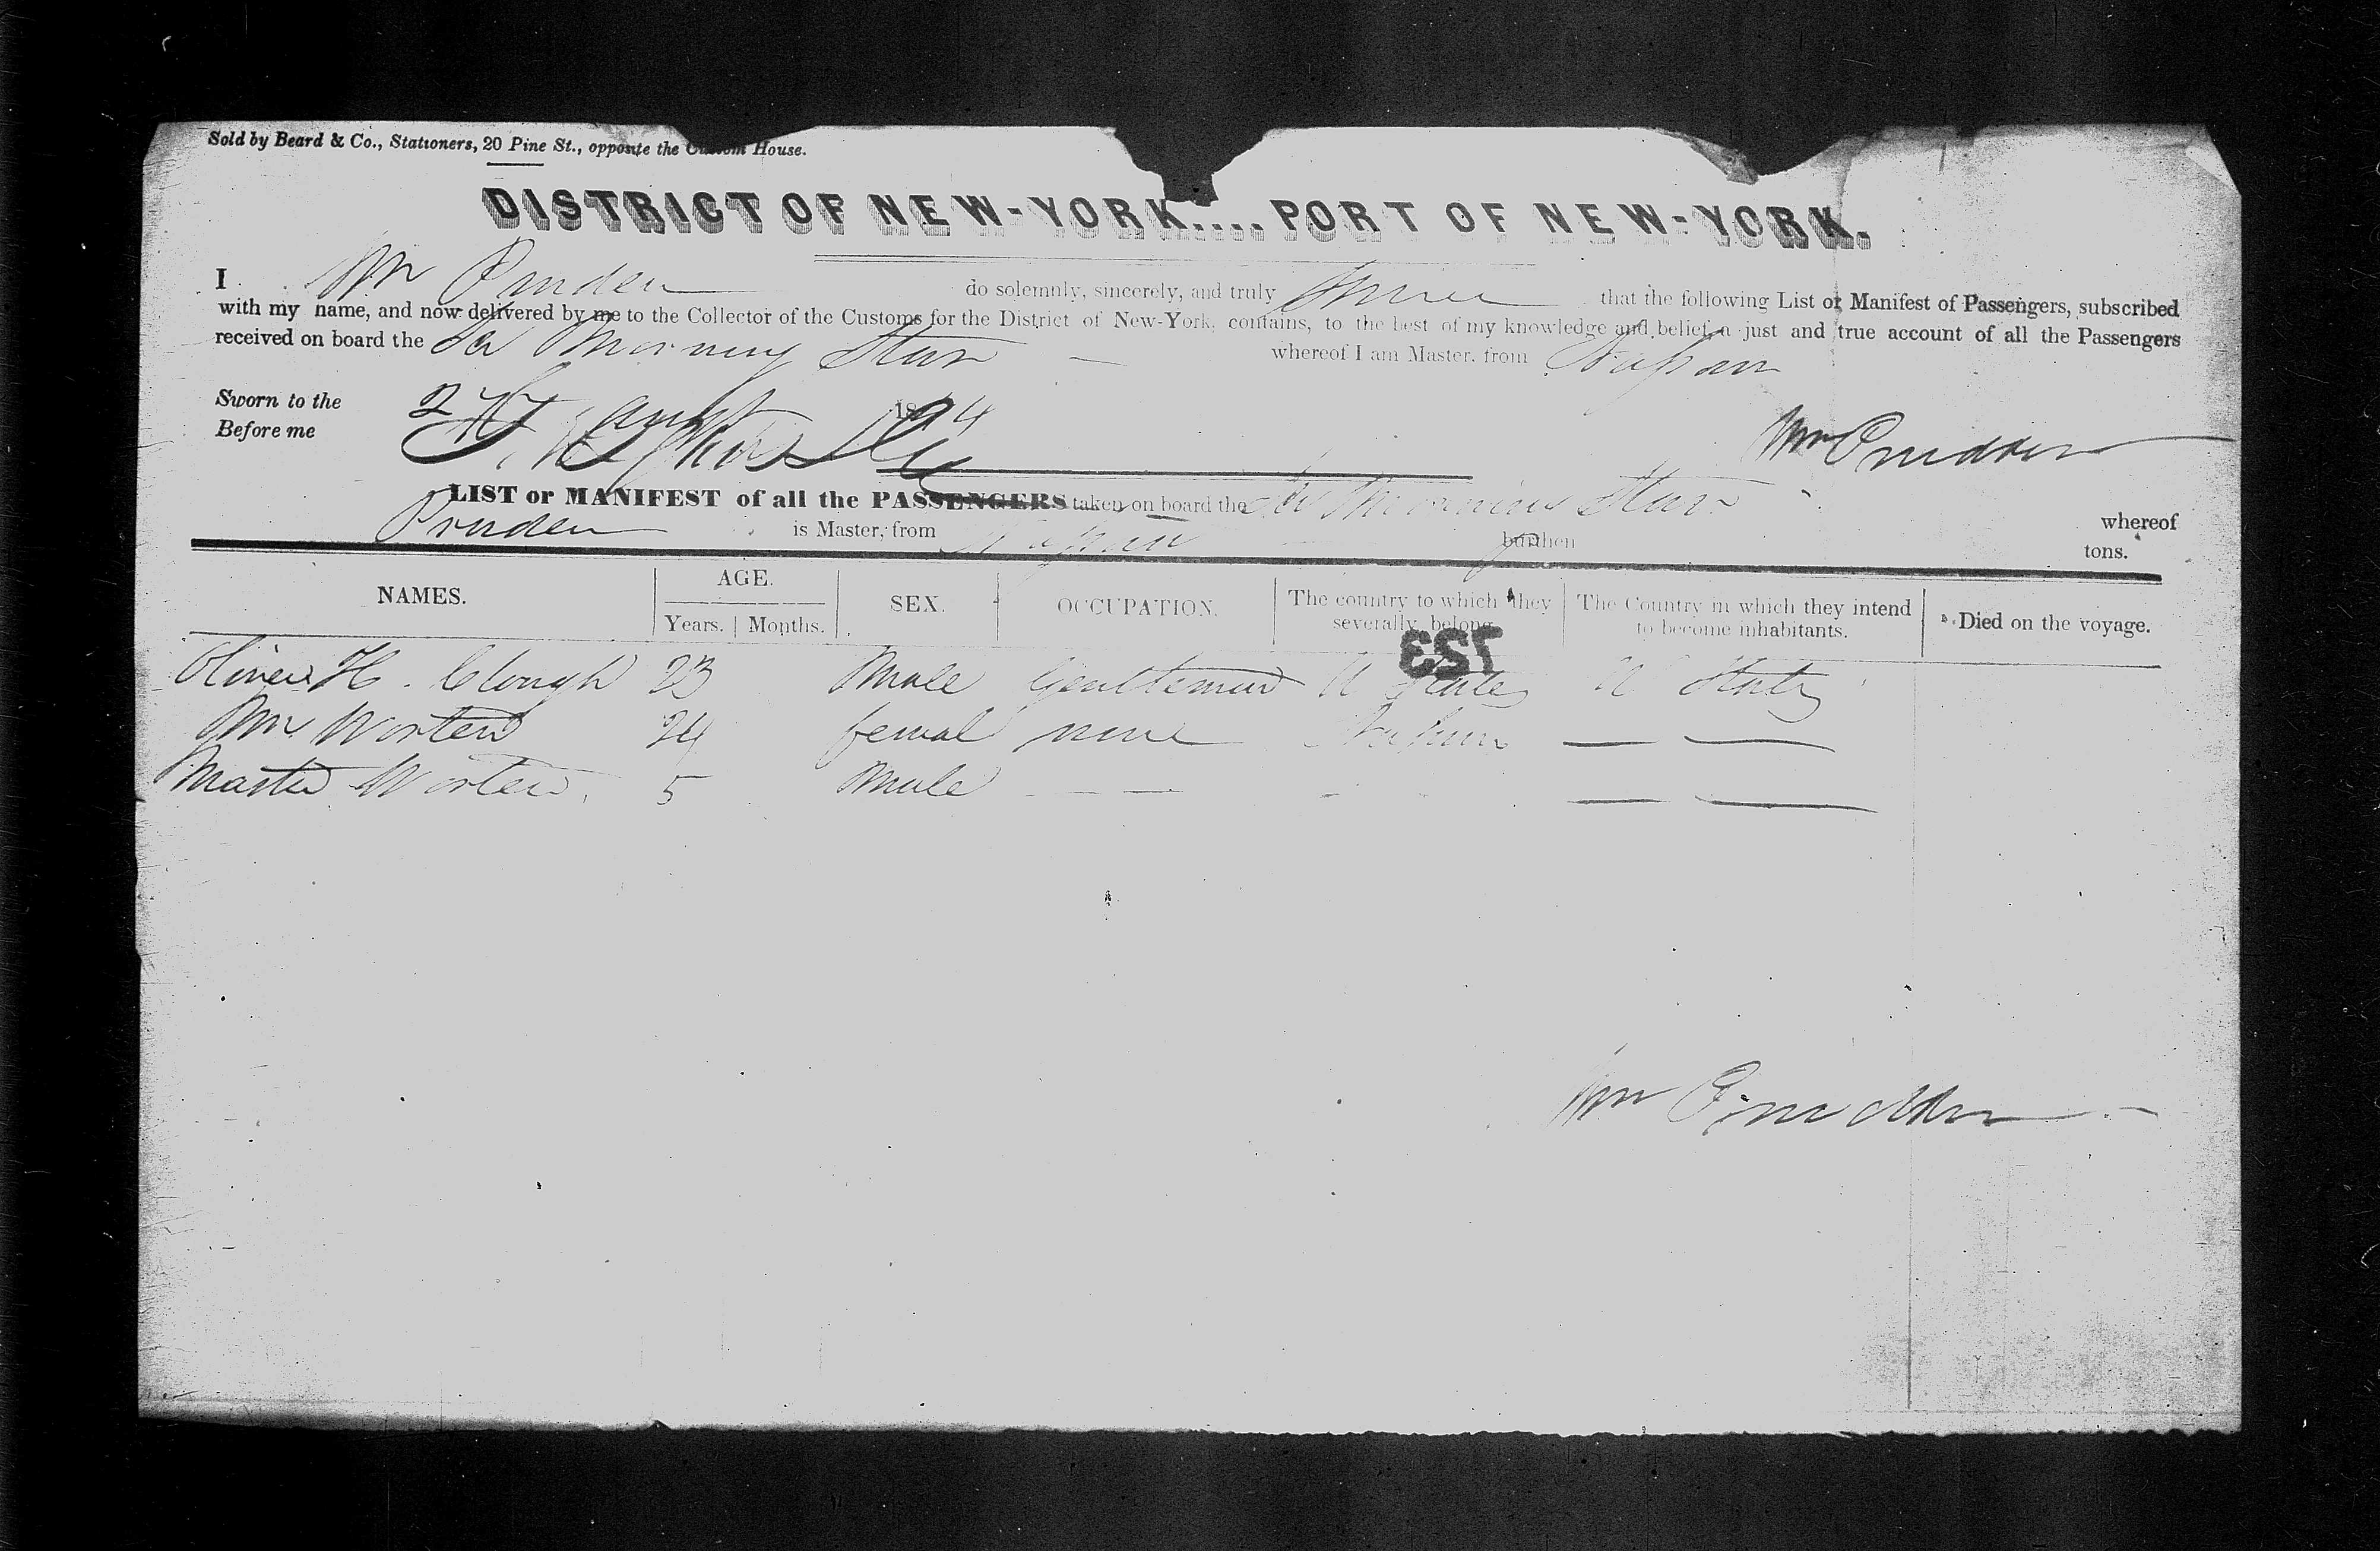 Sold by Beard & Co., Stationers, 20 Pine St., opposite the Custom House.
DISTRICT OF NEW-YORK....PORT OF NEW-YORK.
I Wm Pruden do solemnly, sincerely, and truly Swear that the following List or Manifest of Passengers, subscribed
with my name, and now delivered by me to the Collector of the Customs for the District of New-York, contains, to the best of my knowledge and belief, a just and true account of all the Passengers
received on board the Sch Morning Star whereof I am Master, from Nassau
Sworn to the 27 18
Before me
Wm Prudden
LIST or MANIFEST of all the PASSENGERS taken on board the Sch Morning Star whereof
Pruden is Master, from Nassau burthen tons.
NAMES. AGE. Years. Months. SEX. OCCUPATION. The country to which they severally belong. The Country in which they intend to become inhabitants. Died on the voyage.
723
Oliver H. Clough 23 Male Gentleman U States U States
Worten 24 femal none Nassau
Master Worten 5 Male
Wm Prudden